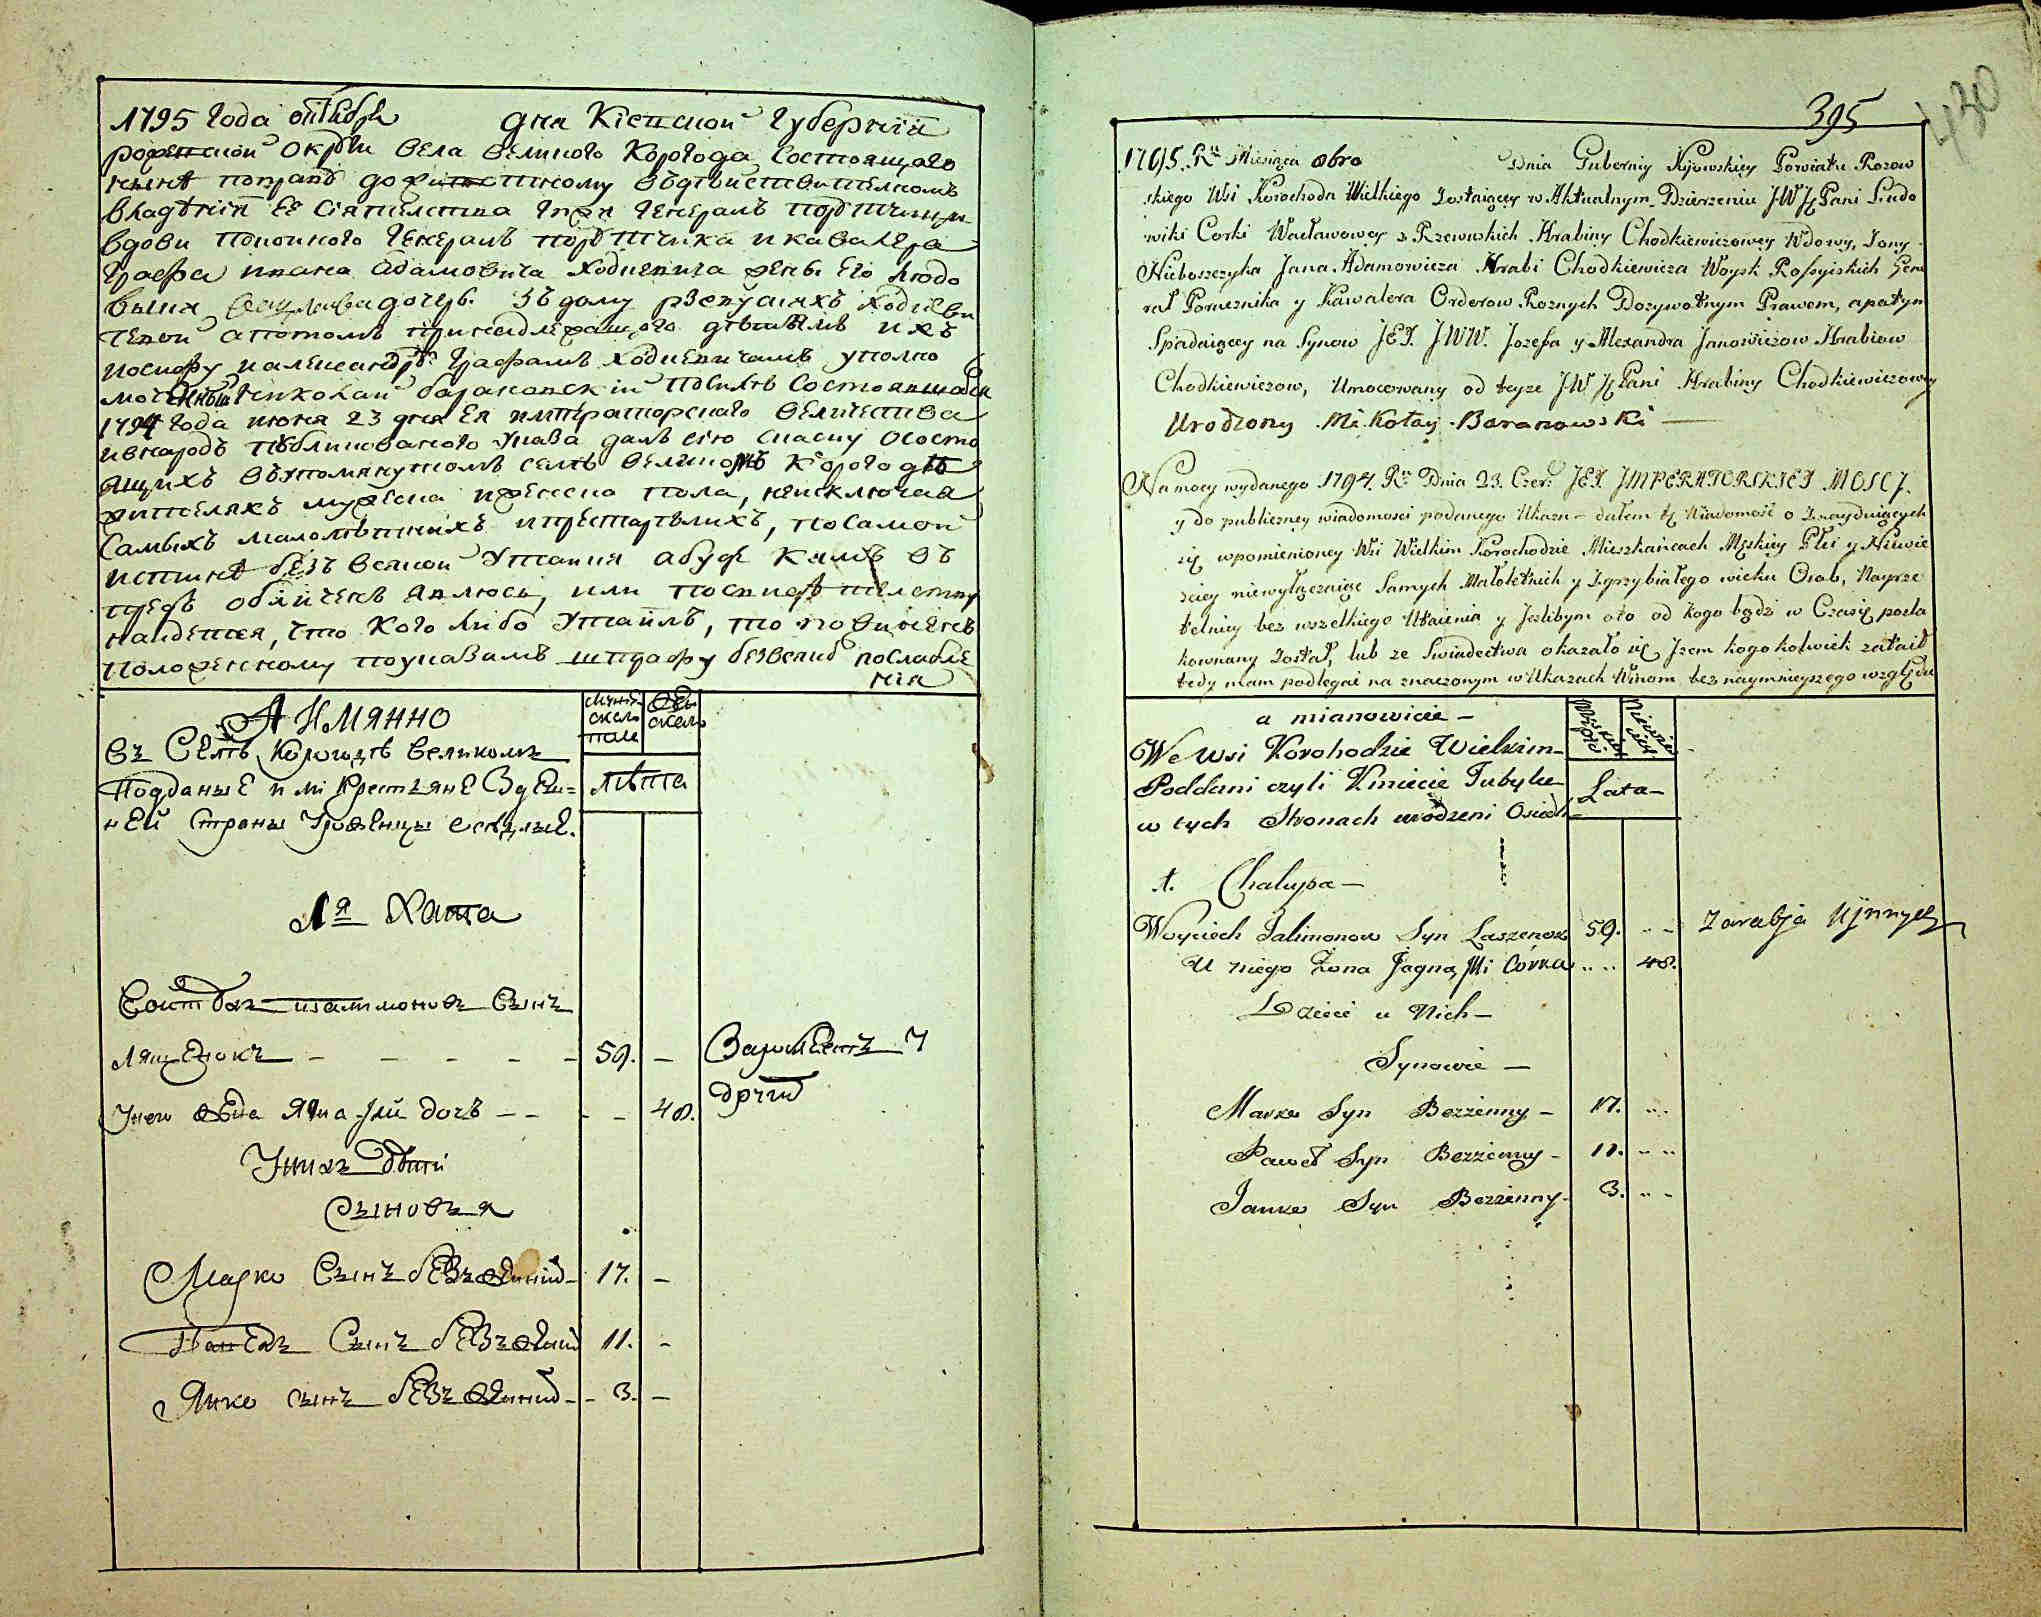 1795 Года октября дня Кіевской Губерніи
села великого Корогода состоящаго
владѣніи Ее Сіятельства
вдови покойного Генералъ порутчика и кавалера
Графа Ивана Адамовича Ходкевича жены Его Людо
дочерь. зъ дому Ржевускихъ Ходкеви
чевой а потомъ принадлежащого дѣтямъ ихъ
Иосифу и александру Графамъ Ходкевичамъ уполно
моченный Николай барановскій
1794 Года июня 23 дня Ея императорского величества
и внародъ публикованого указа далъ сию сказку о состо
ящихъ въ упомянутомъ селѣ великомъ Корогодѣ
жителяхъ мужеска и женска пола, неисключая
самыхъ малолѣтнихъ и престарѣлихъ, по самой
истинѣ безъ всякой утайки а буде кѣмъ въ
обличенъ явлюсь, или по свидетелству
найдется, что кого либо утаилъ, то повиненъ
положенному по указамъ штрафу безвсякаго послабле
нія
А имянно
въ Селѣ Корогодѣ великомъ
Подданые или Крестьяне здеш=
ней страны уроженцы оседлые.
мужеска пола
женска
лѣта
1я Хата
Войтехъ талимоновъ Сынъ
лященокъ - - - - - 59. -
У него жена Ягна Jми дочъ - - - - 48.
У нихъ дѣти
Сыновья
Марко Сынъ безъженній - 17. -
Павелъ Сынъ безъженній 11. -
Янко сынъ безъженній - - 3. -
395
430
1795. Rku Miesiąca 8bra Dnia Gubernij Kijowskiey Powiatu Rozow
skiego Wsi Korochoda Wielkiego Zostaiącey w Aktualnym Dzierżeniu J W Jey Pani Ludo
wiki Corki Wacławowey z Rzewuskich Hrabiny Chodkiewiczowey Wdowy, Żony
Nieboszczyka Jana Adamowicza Hrabi Chodkiewicza Woysk Rossyiskich Gene
rał Porucznika y Kawalera Orderow Roznych Dozywotnym Prawem, a potym
Spadaiącey na Synow JEJ. JWW. Jozefa y Alexandra Janowiczow Hrabiow
Chodkiewiczow, Umocowany od teyze J W Jey Pani Hrabiny Chodkiewiczowey
Urodzony Mikołay Baranowski —
Na mocy wydanego 1794. Rku Dnia 23. Czer: JEJ IMPERATORSKIEJ MOSCJ.
y do publiczney wiadomości podanego Ukazu - dałem tę Wiadomość o Znayduiących
się wpomienioney Wsi Wielkim Korochodzie Mieszkańcach Męskiey Płci y Niewie
sciey niewyłączaiąc Samych Małoletnich y Zgrzybiałego wieku Osob, Nayrze
telniey bez wszelkiego Utaienia y Jezlibym oto od kogo bądź w Czasie poszla
kowany Został, lub ze Swiadectwa okazało się Jzem kogokolwiek zataił
tedy mam podlegać na znaczonym w Ukazach Winom bez naymnieyszego względu
a mianowicie -
We Wsi Korohodzie Wielkim
Poddani czyli Kmiecie Tubylce
w tych Stronach urodzeni Osiedli
Męskiey płci
Niewie sciey
Lata -
1. Chalupa -
Woyciech Talimonow Syn Laszenok 59. .. - Zarabja
U niego Żona Jagna, Jmi Corka .. .. 48.
Dzieci u Nich -
Synowie —
Marko Syn Bezzenny - 17. ..
Paweł Syn Bezzenny - 11. .. ..
Janko Syn Bezzenny - 3. .. -